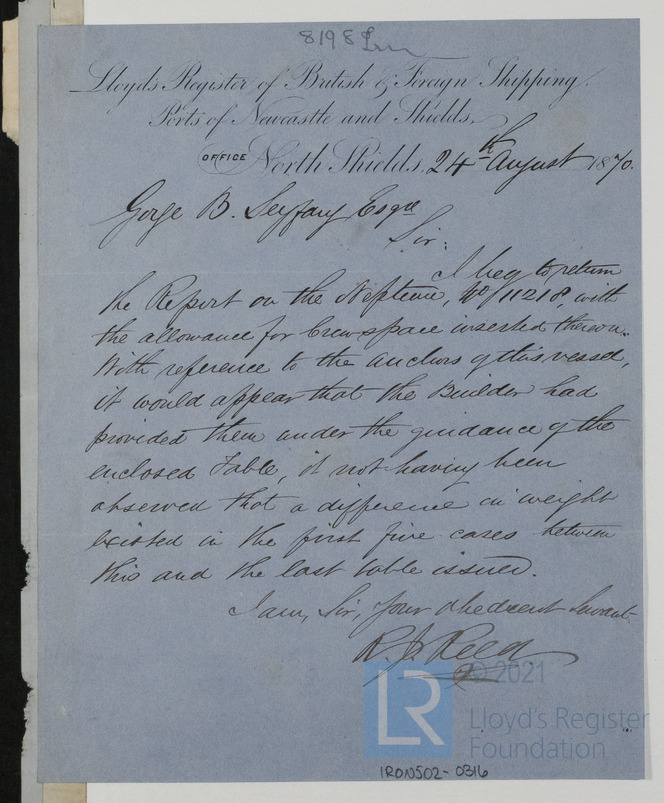 8198 Iron
Lloyd's Register of British & Foreign Shipping.
Ports of Newcastle and Shields.
OFFICE North Shields, 24th August 1870.
George B. Seyfang Esqre
Sir:
I beg to return
the Report on the Neptune, No 11218, with
the allowance for Crew space inserted thereon.
With reference to the anchors of this vessel,
it would appear that the Builder had
provided them under the guidance of the
enclosed Table, it not having been
observed that a difference in weight
existed in the first five cases between
this and the last table issued.
I am, Sir, your obedient Servant
R. J. Reed
© 2021
LR
Lloyd's Register
Foundation
IRON502-0316